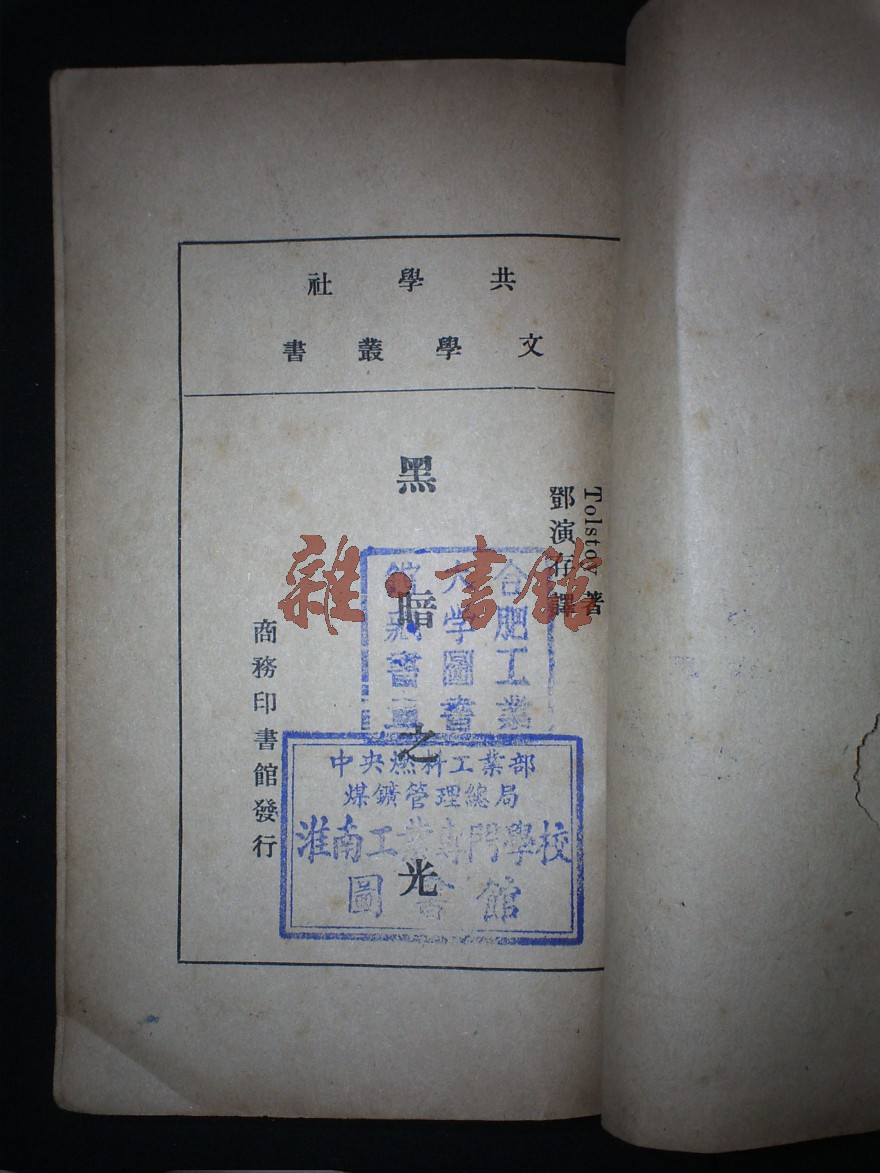 共學社
文學叢書
Tolstoy 著
鄧演存譯
黑暗之光
商務印書館發行
合肥工業
大学圖書
館藏書
中央燃料工業部
煤鑛管理總局
淮南工業專門學校
圖書館
雜·書館